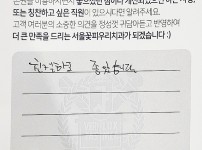 또는 칭찬하고 싶은 직원이 있으시다면 말려주세요.
고객 여러분의 소중한 의견을 정성껏 귀담아듣고 반영하여
더 큰 만족을 드리는 서울꽃피우리치과가 되겠습니다 :)
친절하고 좋았습니다